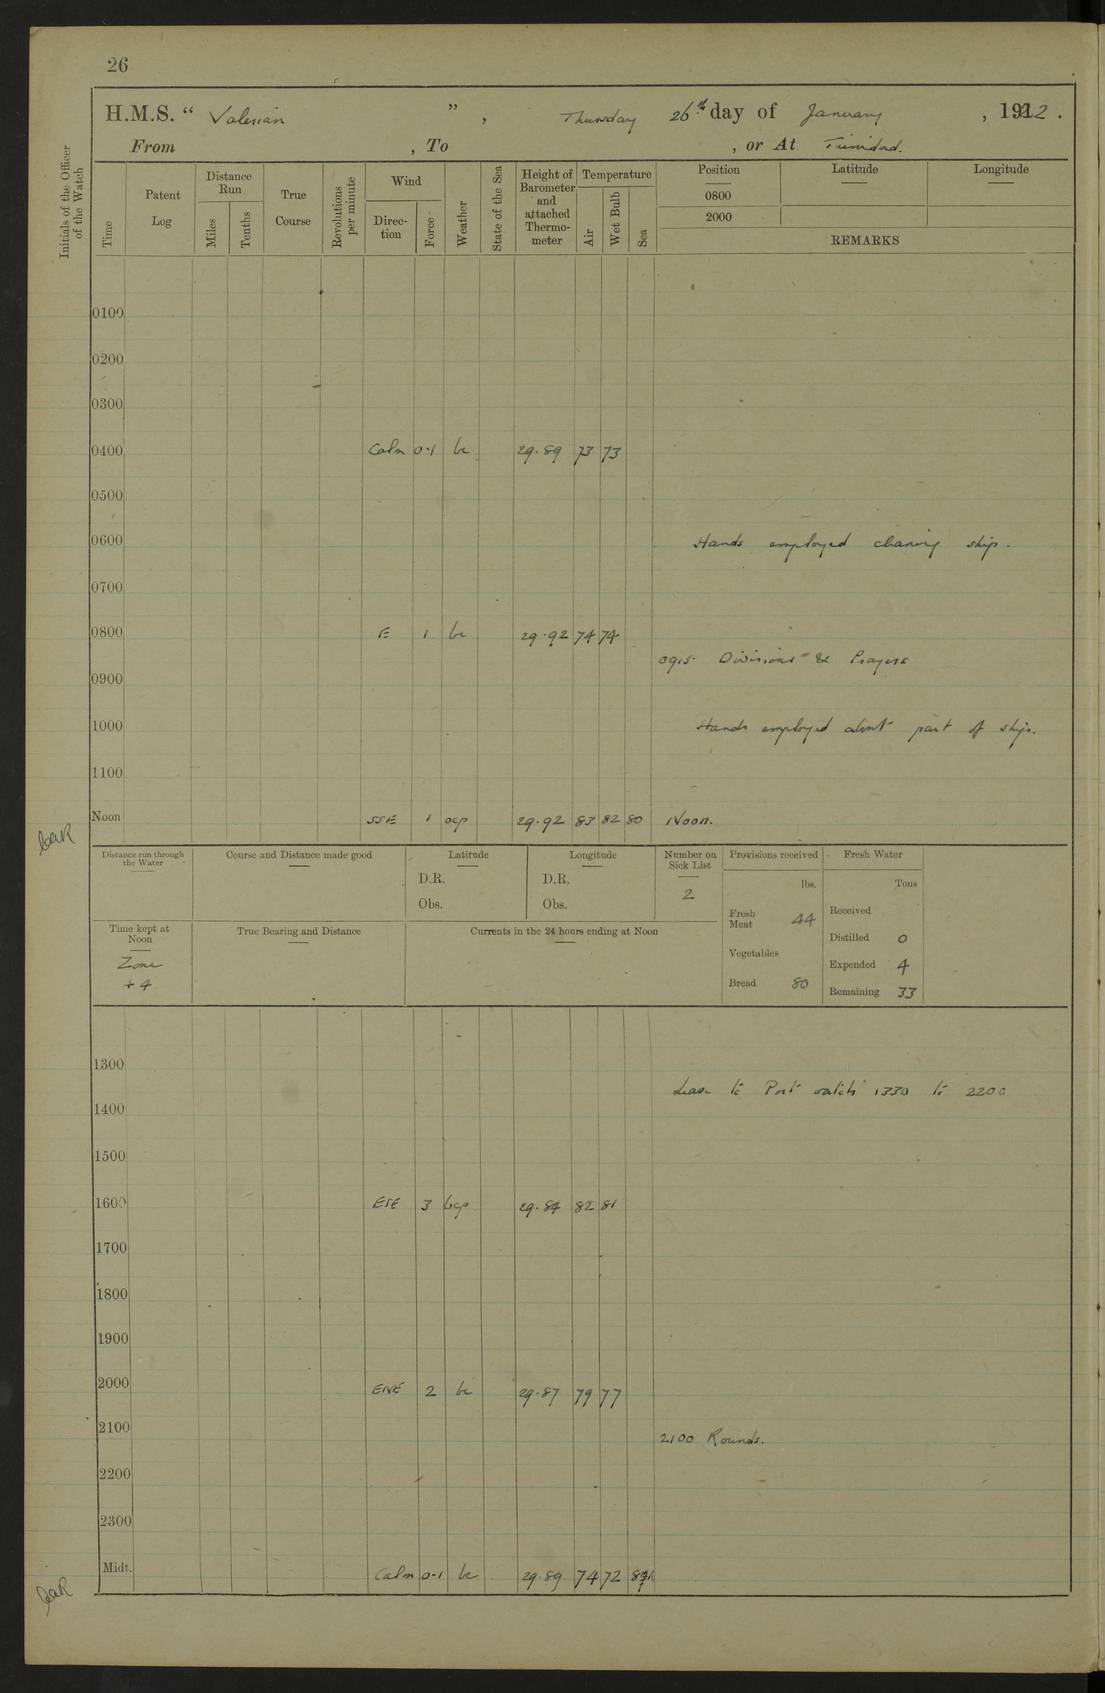 26
H.M.S. " Valerian ", Thursday 26th day of January, 1922.
From , To , or At Trinidad.
Initials of the Officer of the Watch
Time
Patent Log
Distance Run
Miles
Tenths
True Course
Revolutions per minute
Wind
Direc-tion
Force
Weather
State of the Sea
Height of Barometer and attached Thermo-meter
Temperature
Air
Wet Bulb
Sea
Position Latitude Longitude
0800
2000
REMARKS
0100
0200
0300
0400 Calm 0-1 bc 29.89 73 73
0500
0600 Hands employed cleaning ship.
0700
0800 E 1 bc 29.92 74 74
0915. Divisions & Prayers
0900
1000 Hands employed about part of ship.
1100
Noon SSE 1 ocp 29.92 83 82 80 Noon.
Distance run through the Water
Course and Distance made good
Latitude
D.R.
Obs.
Longitude
D.R.
Obs.
Number on Sick List
2
Provisions received
lbs.
Fresh Meat 44
Vegetables
Bread 80
Fresh Water
Tons
Received
Distilled 0
Expended 4
Remaining 33
Time kept at Noon
Zone
+ 4
True Bearing and Distance
Currents in the 24 hours ending at Noon
1300
Leave to Port watch 1330 to 2200
1400
1500
1600 ESE 3 bcp 29.84 82 81
1700
1800
1900
2000 ENE 2 bc 29.87 79 77
2100 2100 Rounds.
2200
2300
Midt. Calm 0-1 bc 29.89 74 72